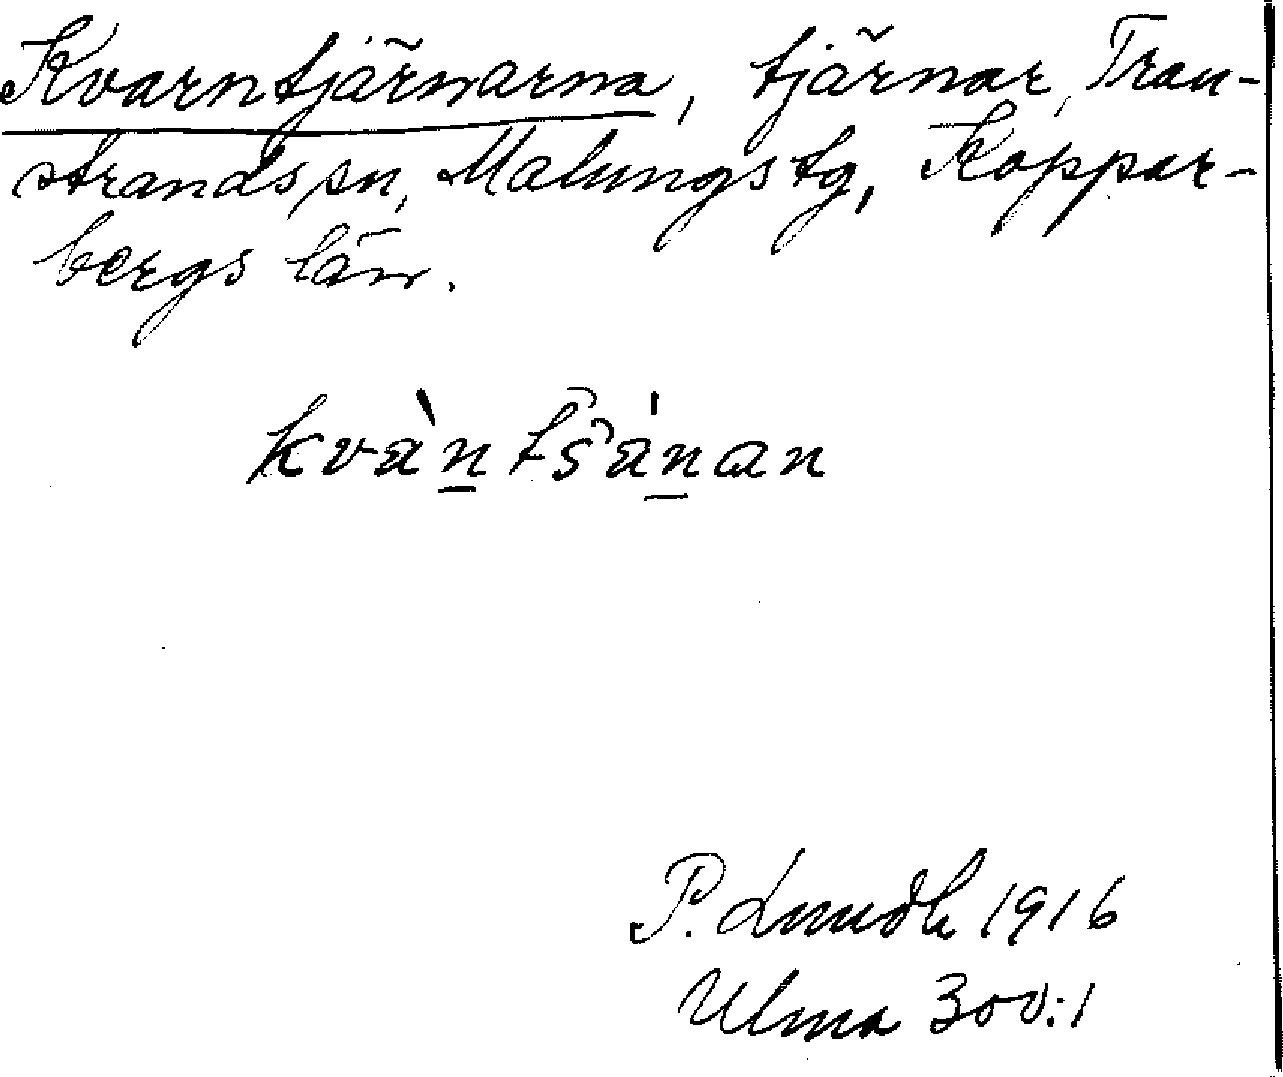 Kvarntjärnarna, tjärnar, Tran-
strands sn, Malungs tg, Koppar-
bergs län.
kvàn̲ tšán̲an
P. Lundh 1916
Ulma 300:1